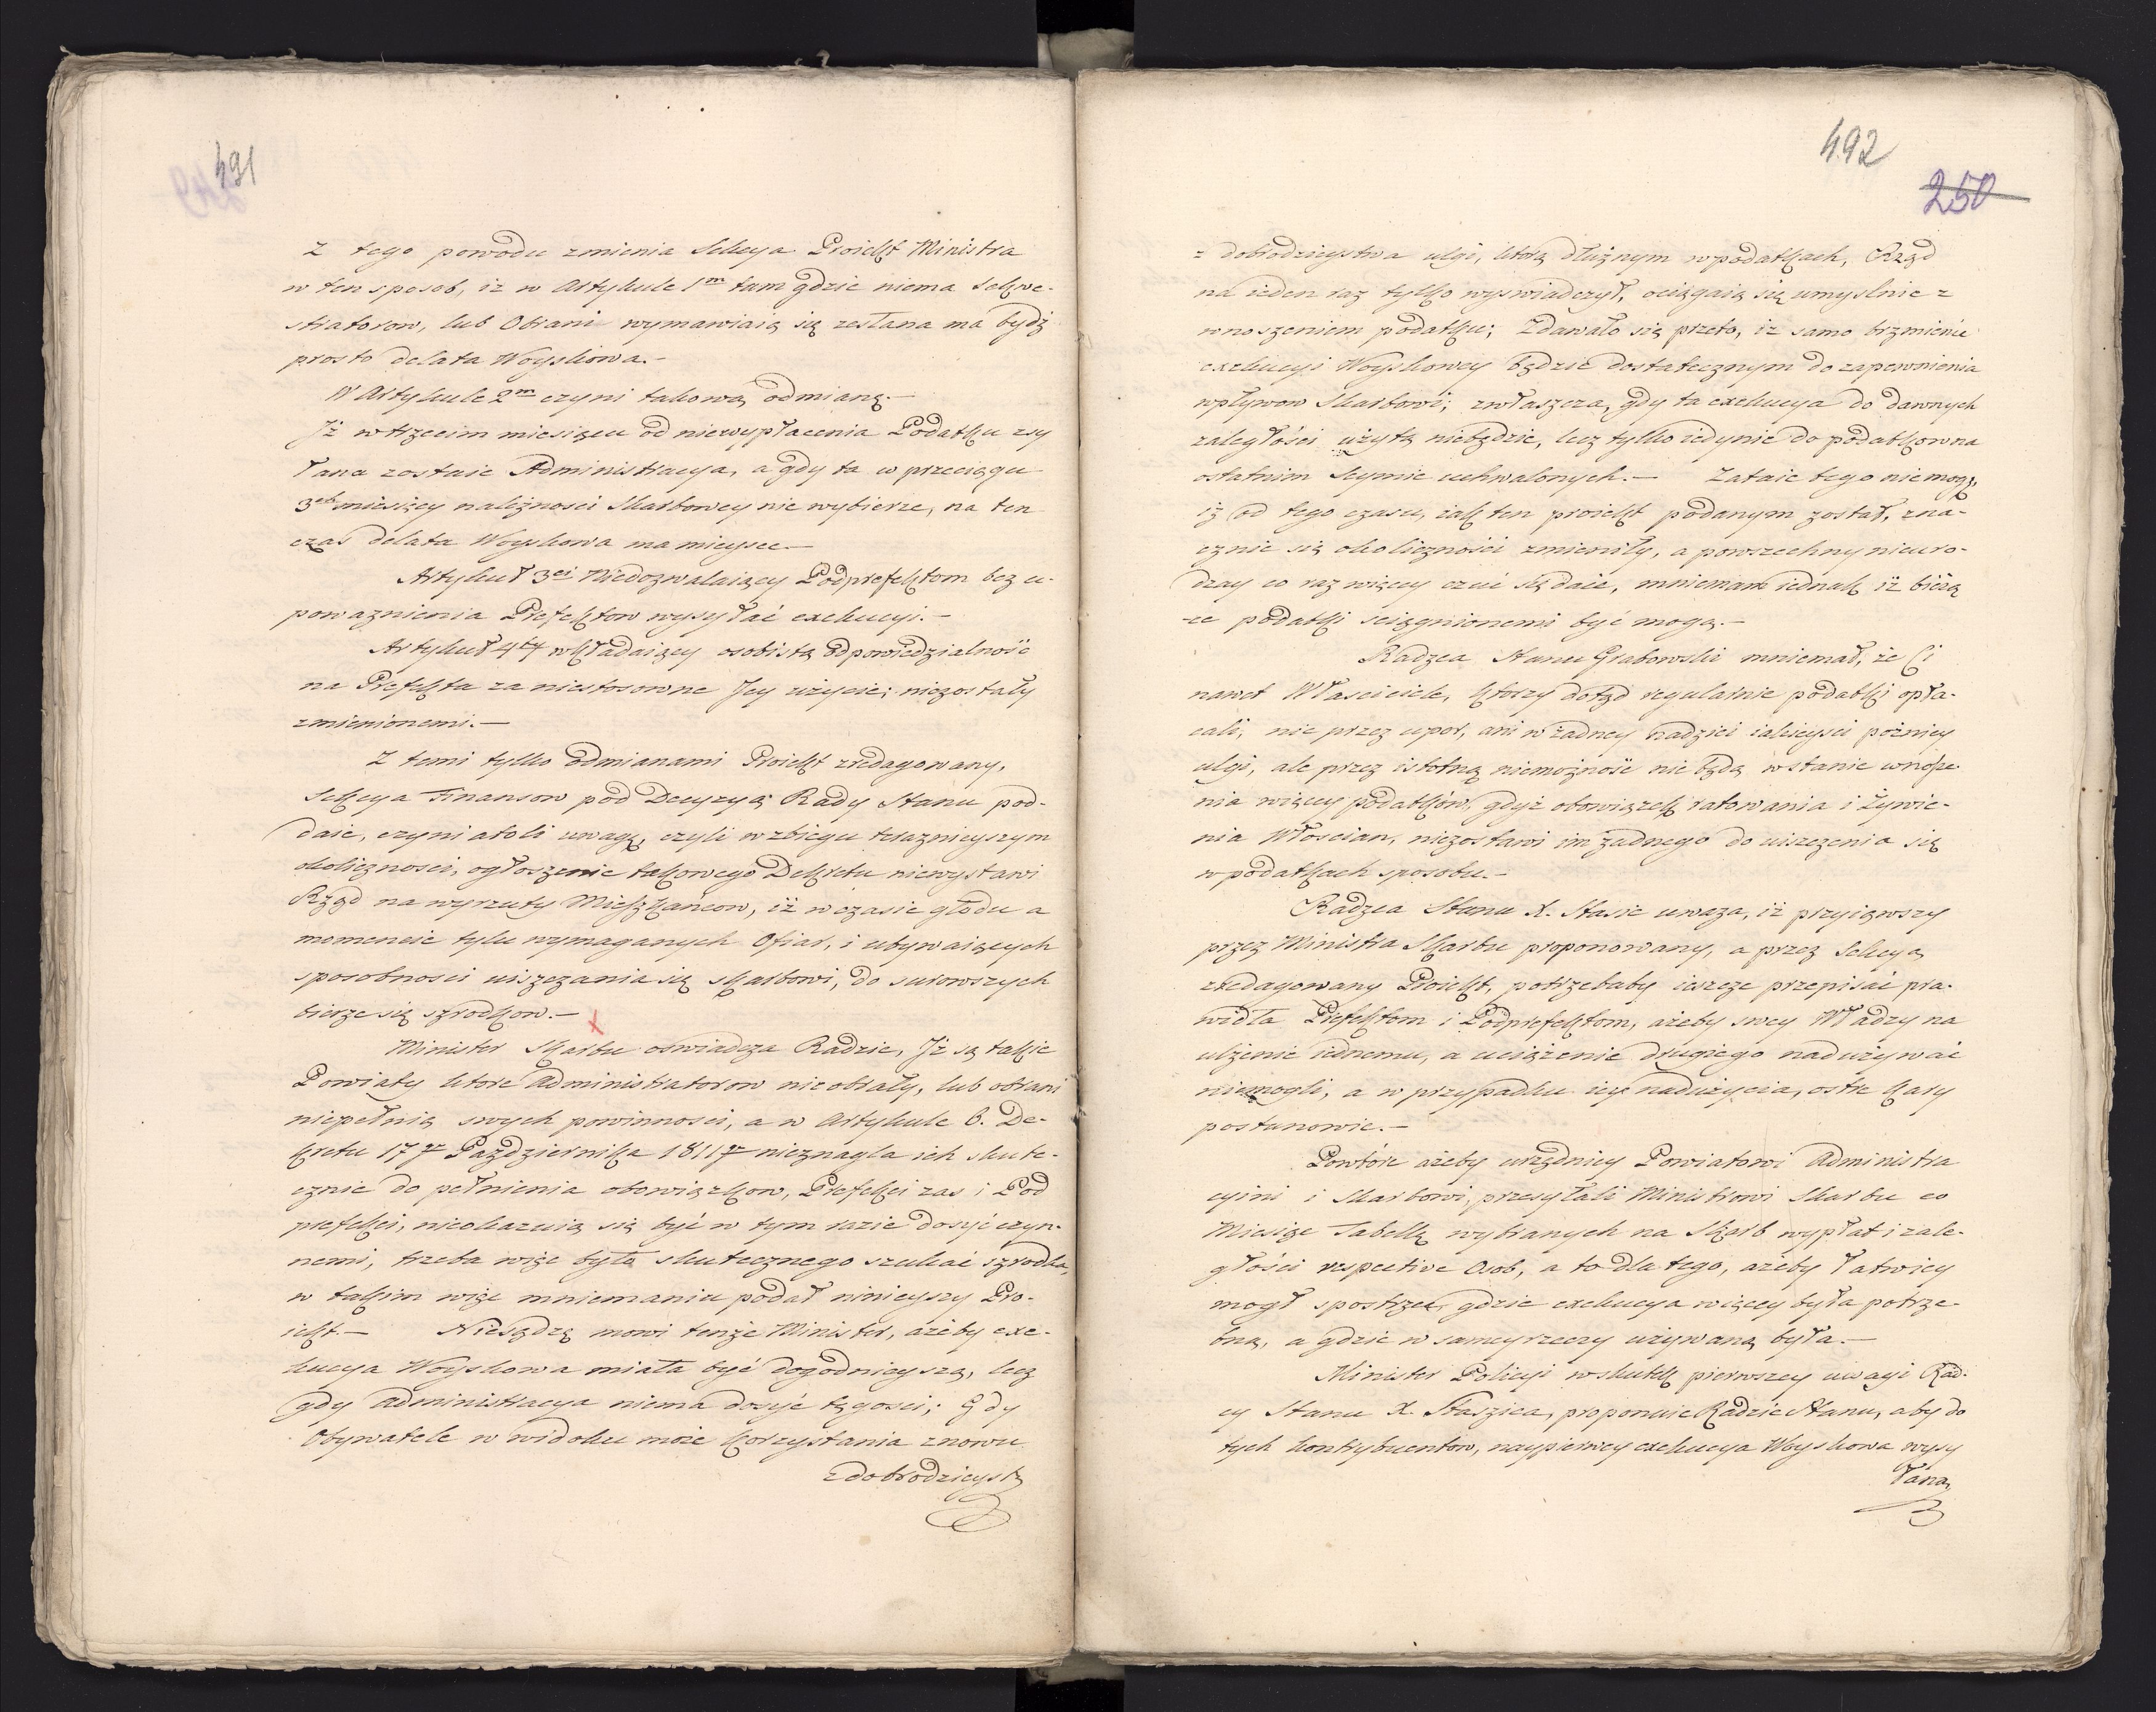 491
z tego powodu zmienia Sekcya Proiekt Ministra
w ten sposob, iz w Artykule 1m tam gdzie niema Sekwe-
stratorow, lub Obrani wymawiaią się zesłana ma bydź
prosto delata Woyskowa.-
W Artykule 2m czyni takową odmianę.-
Iż w trzecim miesiącu od niewypłacenia Podatku zsy
łana zostaie Administracya, a gdy ta w przeciągu
3ch miesięcy należnosci Skarbowey nie wybierze, na ten
czas delata Woyskowa ma mieysce.-
Artykuł 3ci Niedozwalaiący Podprefektom bez u-
poważnienia Prefektow wysyłać exekucyi.-
Artykuł 4ty wkładaiący osobistą odpowiedzialność
na Prefekta za niestosowne Jey użycie; niezostały
zmienionemi.-
Z temi tylko odmianami Proiekt zredagowany,
Sekcya Finansow pod Decyzyą Rady Stanu pod-
daie, czyni atoli uwagę, czyli w zbiegu teraznieyszym
okoliczności, ogłoszenie takowego Dekretu niewystawi
Rząd na wyrzuty Mieszkańcow, iż w czasie głodu a
momencie tylu wymaganych Ofiar, i ubywaiących
sposobnosci uiszczania się skarbowi, do surowszych
bierze się szrodkow.-
Minister Skarbu oświadcza Radzie, Iż są takie
Powiaty ktore Administratorow nieobrały, lub obrani
niepełnią swych powinnosci, a w Artykule 6. De-
kretu 17go Października 1811go nieznagla ich skute-
cznie do pełnienia obowiązkow, Prefekci zas i Pod
prefekci, nieokazuią się być w tym razie dosyć czyn-
nemi, trzeba więc było skutecznego szukać szrodka,
w takim więc mniemaniu podał ninieyszy Pro-
iekt.- Niesądzę mowi tenże Minister, ażeby exe-
kucya Woyskowa miała być dogodnieyszą, lecz
gdy Administracya niema dosyć tęgosci; Gdy
Obywatele w widoku może korzystania znowu
z dobrodzieyst
492
250
z dobrodzieystwa ulgi, ktorą dłużnym w podatkach, Rząd
na ieden raz tylko wyswiadczył, ociągaią się umyslnie z
wnoszeniem podatku; Zdawało się przeto, iż samo brzmienie
exekucyi Woyskowey będzie dostatecznym do zapewnienia
wpływow Skarbowi; zwłaszcza, gdy ta exekucya do dawnych
zaległości użytą niebędzie, lecz tylko iedynie do podatkow na
ostatnim Seymie uchwalonych.- Zataic tego niemogę,
iż od tego czasu, iak ten proiekt podanym został, zna-
cznie się okoliczności zmieniły, a powszechny nieuro-
dzay co raz więcey czuć się daie, mniemam iednak iż bieżą
-ce podatki sciągnionemi być mogą.-
Radzca Stanu Grabowski mniemał, że Ci
nawet Własciciele, ktorzy dotąd regularnie podatki opła-
cali, nie przez upor, ani w żadney nadziei iakieysci pożniey
ulgi, ale przez istotną niemożność nie będą w stanie wnosze
nia więcey podatków, gdyż obowiązek ratowania i żywie-
nia Włoscian, niezostawi im żadnego do uiszczenia się
w podatkach sposobu.-
Radzca Stanu X. Stasic uwaza, iż przyiąwszy
przez Ministra Skarbu proponowany, a przez Sekcyą
zredagowany Proiekt, potrzebaby ieszcze przepisać pra-
widła Prefektom i Podprefektom, ażeby swey Władzy na
ulżenie iednemu, a uciążenie drugiego nadużywać
niemogli, a w przypadku iey nadużycia, ostre kary
postanowic.-
Powtóre ażeby urzędnicy Powiatowi Administra
cyini i Skarbowi, przesyłali Ministrowi Skarbu co
Miesiąc Tabellę wybranych na Skarb wypłat i zale-
głości respective Osob, a to dla tego, ażeby łatwiey
mogł spostrzec, gdzie exekucya więcey była potrze-
bną, a gdzie w samey rzeczy używaną była.-
Minister Policyi w skutek pierwszey uwagi Rad-
cy Stanu X. Staszica, proponuie Radzie Stanu, aby do
tych kontrybuentow, naypierwey exekucya Woyskowa wysy
łana,